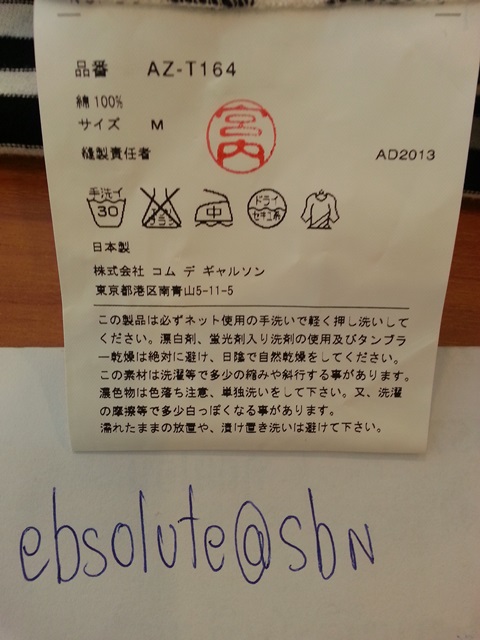 品番 AZ-T164
綿 100%
サイズ M
縫製責任者
宮内
AD2013
手洗イ
30
エンソ
サラシ
中
ドライ
セキユ系
日本製
株式会社 コム デ ギャルソン
東京都港区南青山5-11-5
この製品は必ずネット使用の手洗いで軽く押し洗いして
ください。漂白剤、蛍光剤入り洗剤の使用及びタンブラ
ー乾燥は絶対に避け、日陰で自然乾燥をしてください。
この素材は洗濯等で多少の縮みや斜行する事があります。
濃色物は色落ち注意、単独洗いをして下さい。又、洗濯
の摩擦等で多少白っぽくなる事があります。
濡れたままの放置や、漬け置き洗いは避けて下さい。
ebsolute@sbn